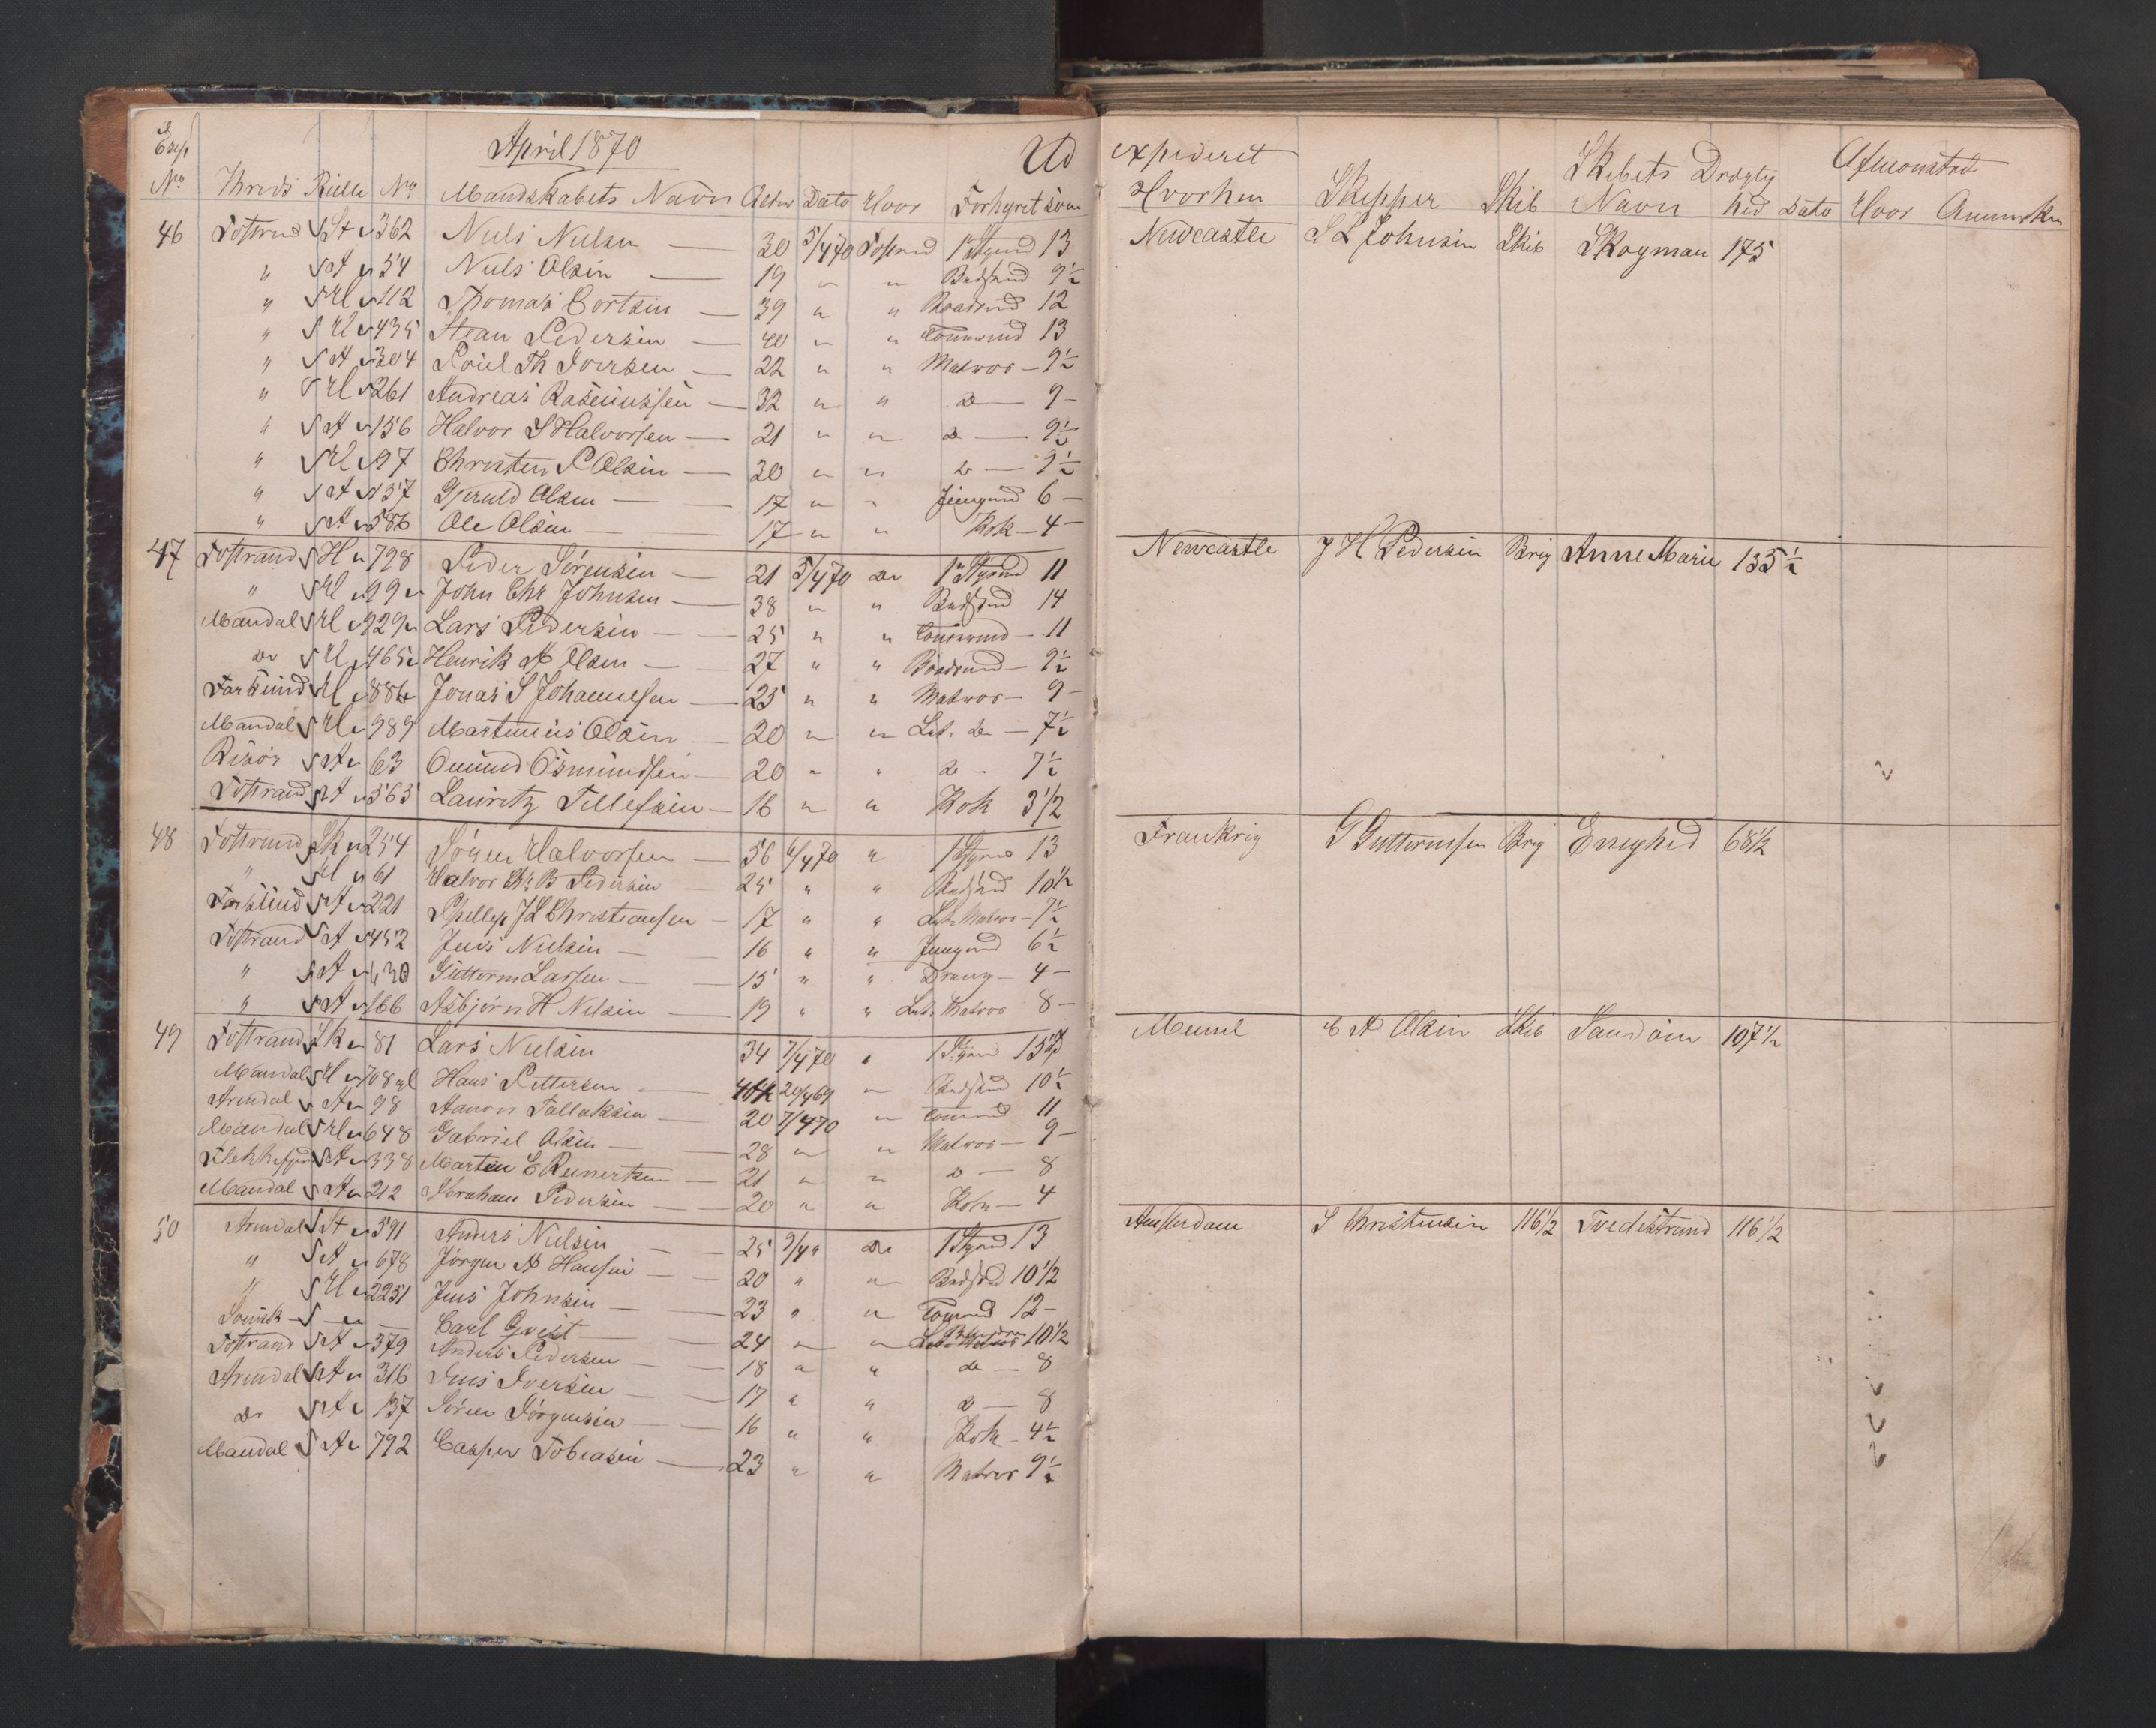 April 1870 Ud expederet
Exp No Kreds Rulle No Mandskabets Navn Alder Dato Hvor Forhyret som Hvorhen Skipper Skib Skibets Navn Drægtighed Afmønstret Dato Hvor Anmærkn
46 Tvstrand 362 Niels Nielsen — 30 5/4 70 Tvstrand 1 Styrmd 13 Newcastle S L Johnsen Skib Skogman 175
" 54 Niels Olsen — 19 " " Badsmd 9½
" 112 Thomas Bortsen — 39 " " 12
" 435 Pedersen — 40 " " Tømmrmd 13
" 304 Poul Th Iversen — 22 " " Matros — 9½
" 261 Andreas Rasmussen — 32 " " do — 9 —
" 156 Halvor S Halvorsen — 21 " " do — 9½
" 97 Christen P Olsen — 30 " " do — 9½
" Gjeruld Olsen — 17 " " Jungmd 6 —
" 586 Ole Olsen — 17 " " Kok — 4 —
47 Tvstrand 798 Peder Sørensen — 21 5/4 70 do 1 Styrmd 11 Newcastle J H Pedersen Brig Anne Marie 135½
" 99 John Chr Johnsen — 38 " " Badsmd 14
Mandal 929 Lars Pedersen — 25 " " Tømrmd — 11
do 465 Henrik A Olsen — 27 " " — 9½
Farsund 884 Jonas S Johannesen — 25 " " Matros — 9 —
Mandal 989 Martinius Olsen — 20 " " Let. do — 7½
Risør 63 Omund Osmundsen — 20 " " do — 7½
Tvstrand 565 Lauritz Tellefsen — 16 " " Kok 3½
48 Tvstrand 254 Søren Halvorsen — 56 6/4 70 " 1 Styrmd 13 Frankrig G Guttormsen Brig Enighed 68½
" 61 Halvor Chr B Pedersen 25 " " Badsmd 10½
Farsund 221 Phillip J L Christiansen — 17 " " Let. Matros — 7½
Tvstrand 452 Jens Nielsen — 16 " " Jungmd 6½
" 630 Guttorm Larsen — 15 " " Dreng — 4 —
" 166 Asbjørn H Nilsen — 19 " " Let. Matros 8 —
49 Tvstrand 81 Lars Nielsen 34 7/4 70 " 1 Styrmd Memel C A Olsen Skib 107½
Mandal 708 Hans Pettersen — 20/4 69 " Badsmd 10½
Arendal 98 Aanon Tallaksen — 20 7/4 70 " Tømmd 11
Mandal 648 Gabriel Olsen — 28 " " Matros — 9 —
Flekkefjord 338 Martin E Reinertsen — 21 " " do — 8
Mandal 212 Abraham Pedersen — 20 " " Kok — 4
50 Arendal 591 Anders Nielsen — 25 9/4 " do 1 Styrmd 13 Amsterdam S Christensen 116½ Tvedestrand 116½
" 678 Jørgen A Hansen — 20 " " Badsmd 10½
" 2251 Jens Johnsen — 23 " " Tømmd 12 —
Svensk — Carl Qvist — 24 " " Let. Matros 10½
Tvstrand 379 Anders Pedersen — 18 " " do — 8
Arendal 316 Jens Iversen — 17 " " do — 8
do 137 Søren Jørgensen — 16 " " Kok — 4½
Mandal 792 Casper Tobiasen — 23 " " Matros 9½